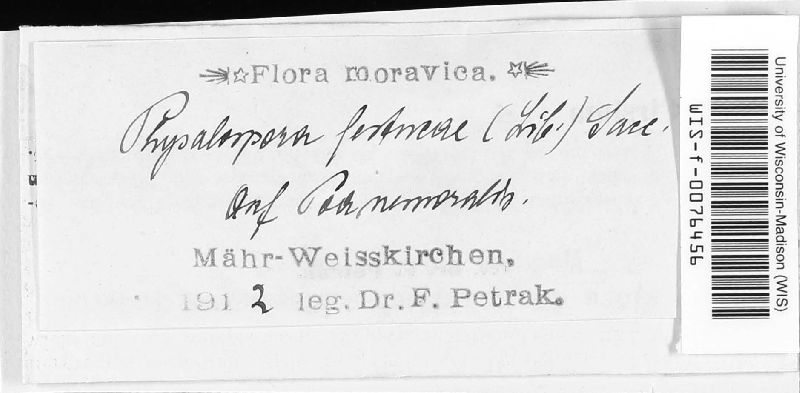 Flora moravica.
Physalospora festucae (Lib.) Sacc.
auf Poa nemoralis.
Mähr-Weisskirchen,
1912 leg. Dr. F. Petrak.
University of Wisconsin-Madison (WIS)
WIS-f-0076456